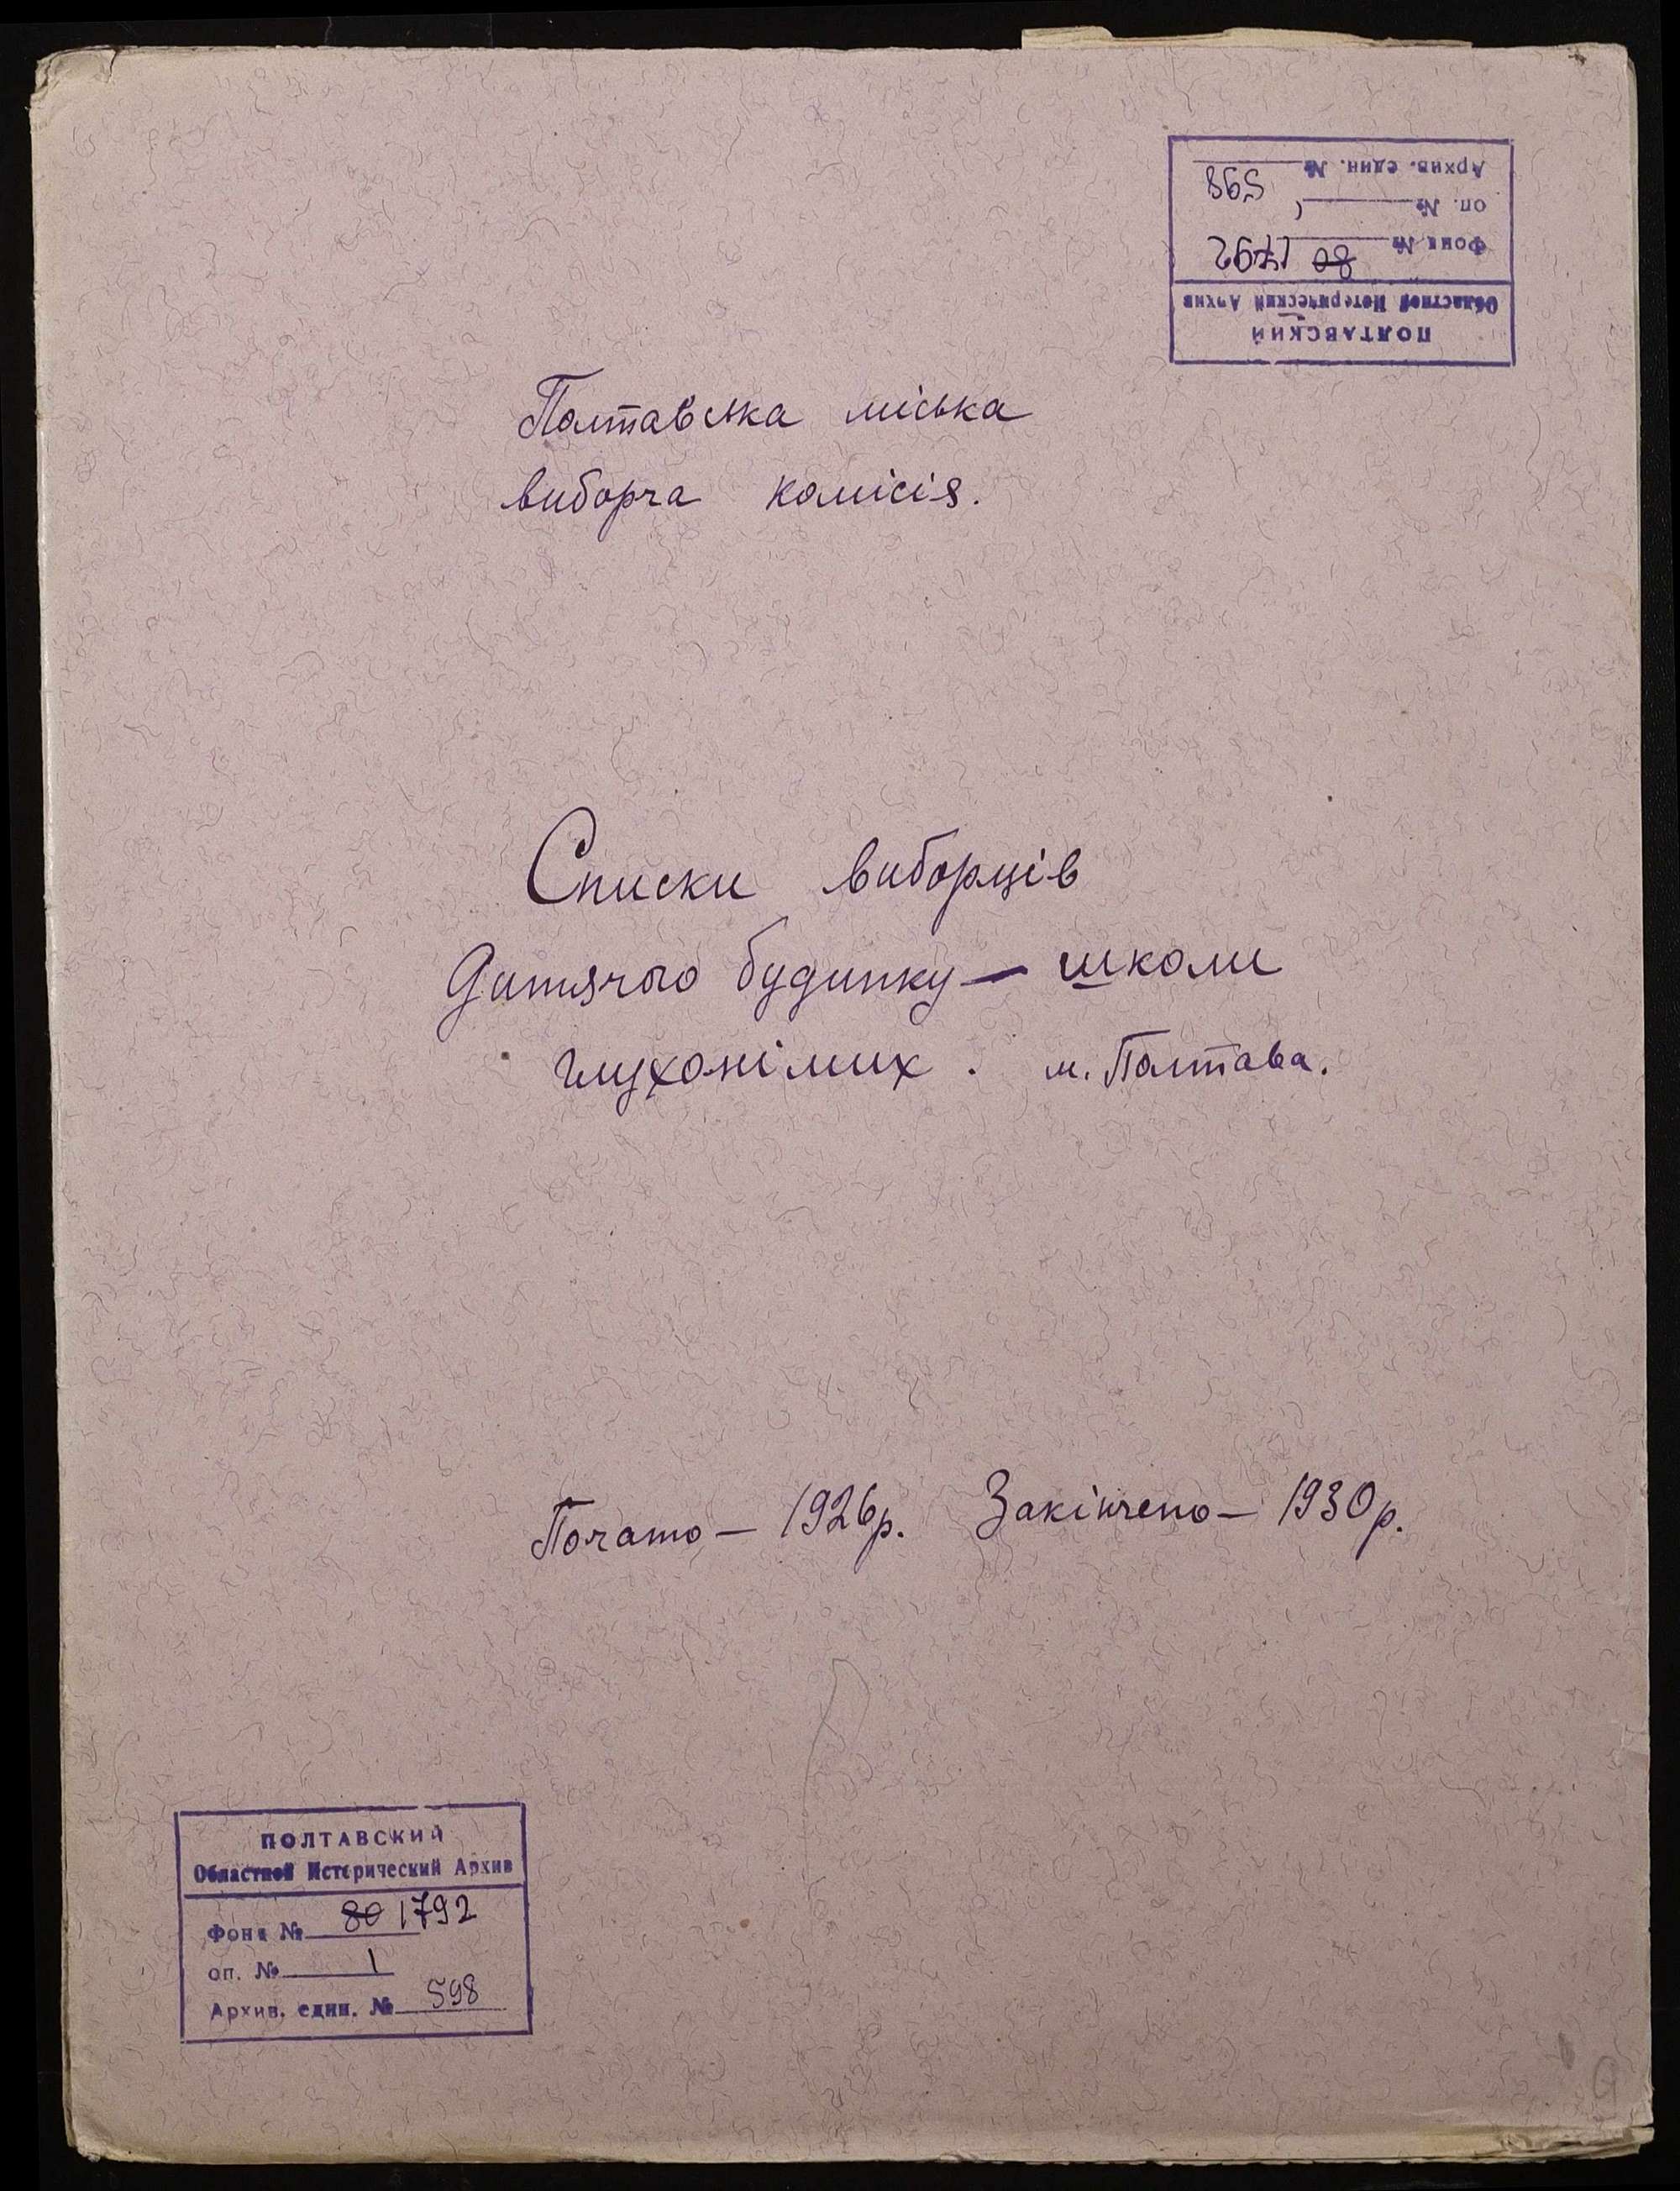 ПОЛТАВСКИЙ
Областной Исторический Архив
Фонд № 80 1792
оп. № 1
Архив. един. № 598
Полтавська міська
виборча комісія.
Списки виборців
Дитячого будинку — школи
глухонімих. м. Полтава.
Почато — 1926 р. Закінчено — 1930 р.
ПОЛТАВСКИЙ
Областной Исторический Архив
Фонд № 80 1792
оп. № 1
Архив. един. № 598